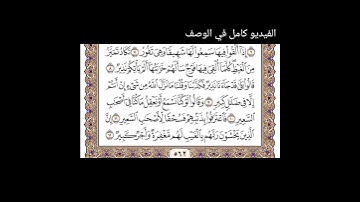 الفيديو كامل في الوصف
إِذَا أُلْقُوا فِيهَا سَمِعُوا لَهَا شَهِيقًا وَهِيَ تَفُورُ ٧ تَكَادُ تَمَيَّزُ
مِنَ الْغَيْظِ كُلَّمَا أُلْقِيَ فِيهَا فَوْجٌ سَأَلَهُمْ خَزَنَتُهَا أَلَمْ يَأْتِكُمْ نَذِيرٌ ٨
قَالُوا بَلَىٰ قَدْ جَاءَنَا نَذِيرٌ فَكَذَّبْنَا وَقُلْنَا مَا نَزَّلَ اللَّهُ مِن شَيْءٍ إِنْ أَنتُمْ
إِلَّا فِي ضَلَالٍ كَبِيرٍ ٩ وَقَالُوا لَوْ كُنَّا نَسْمَعُ أَوْ نَعْقِلُ مَا كُنَّا فِي أَصْحَابِ
السَّعِيرِ ١٠ فَاعْتَرَفُوا بِذَنبِهِمْ فَسُحْقًا لِّأَصْحَابِ السَّعِيرِ ١١ إِنَّ
الَّذِينَ يَخْشَوْنَ رَبَّهُم بِالْغَيْبِ لَهُم مَّغْفِرَةٌ وَأَجْرٌ كَبِيرٌ ١٢
٥٦٢